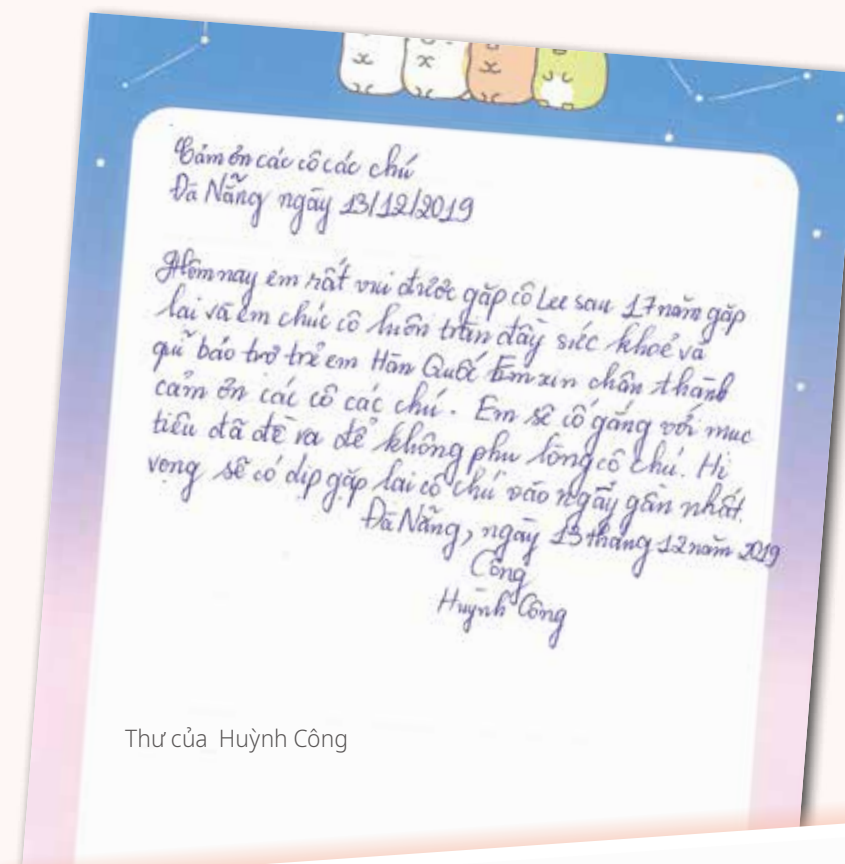 Cảm ơn các cô các chú
Đà Nẵng ngày 13/12/2019
Hôm nay em rất vui được gặp cô Lee sau 17 năm gặp
lai và em chúc cô luôn tràn đầy sức khoẻ và
quĩ bảo trở trẻ em Hàn Quốc Em xin chân thành
cảm ơn các cô các chú. Em sẽ cố gắng với muc
tiêu đã đề ra để không phu lòng cô chú. Hi
vong sẽ có dip gặp lai cô chú vào ngày gần nhất.
Đà Nẵng, ngày 13 tháng 12 năm 2019
Công
Huỳnh Công
Thư của Huỳnh Công